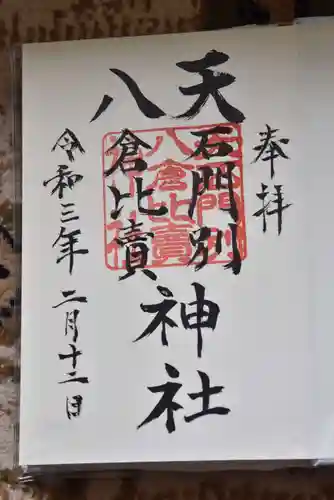 奉拝
天石門別
八倉比賣
神社
令和三年
二月十二日